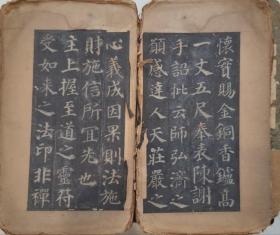 懷寶賜金銅香鑪高
一丈五尺奉表陳謝
手詔批云師弘濟之
願感達人天莊嚴之
心義成因果則法施
財施信所宜先也
主上握至道之靈符
受如來之法印非禪